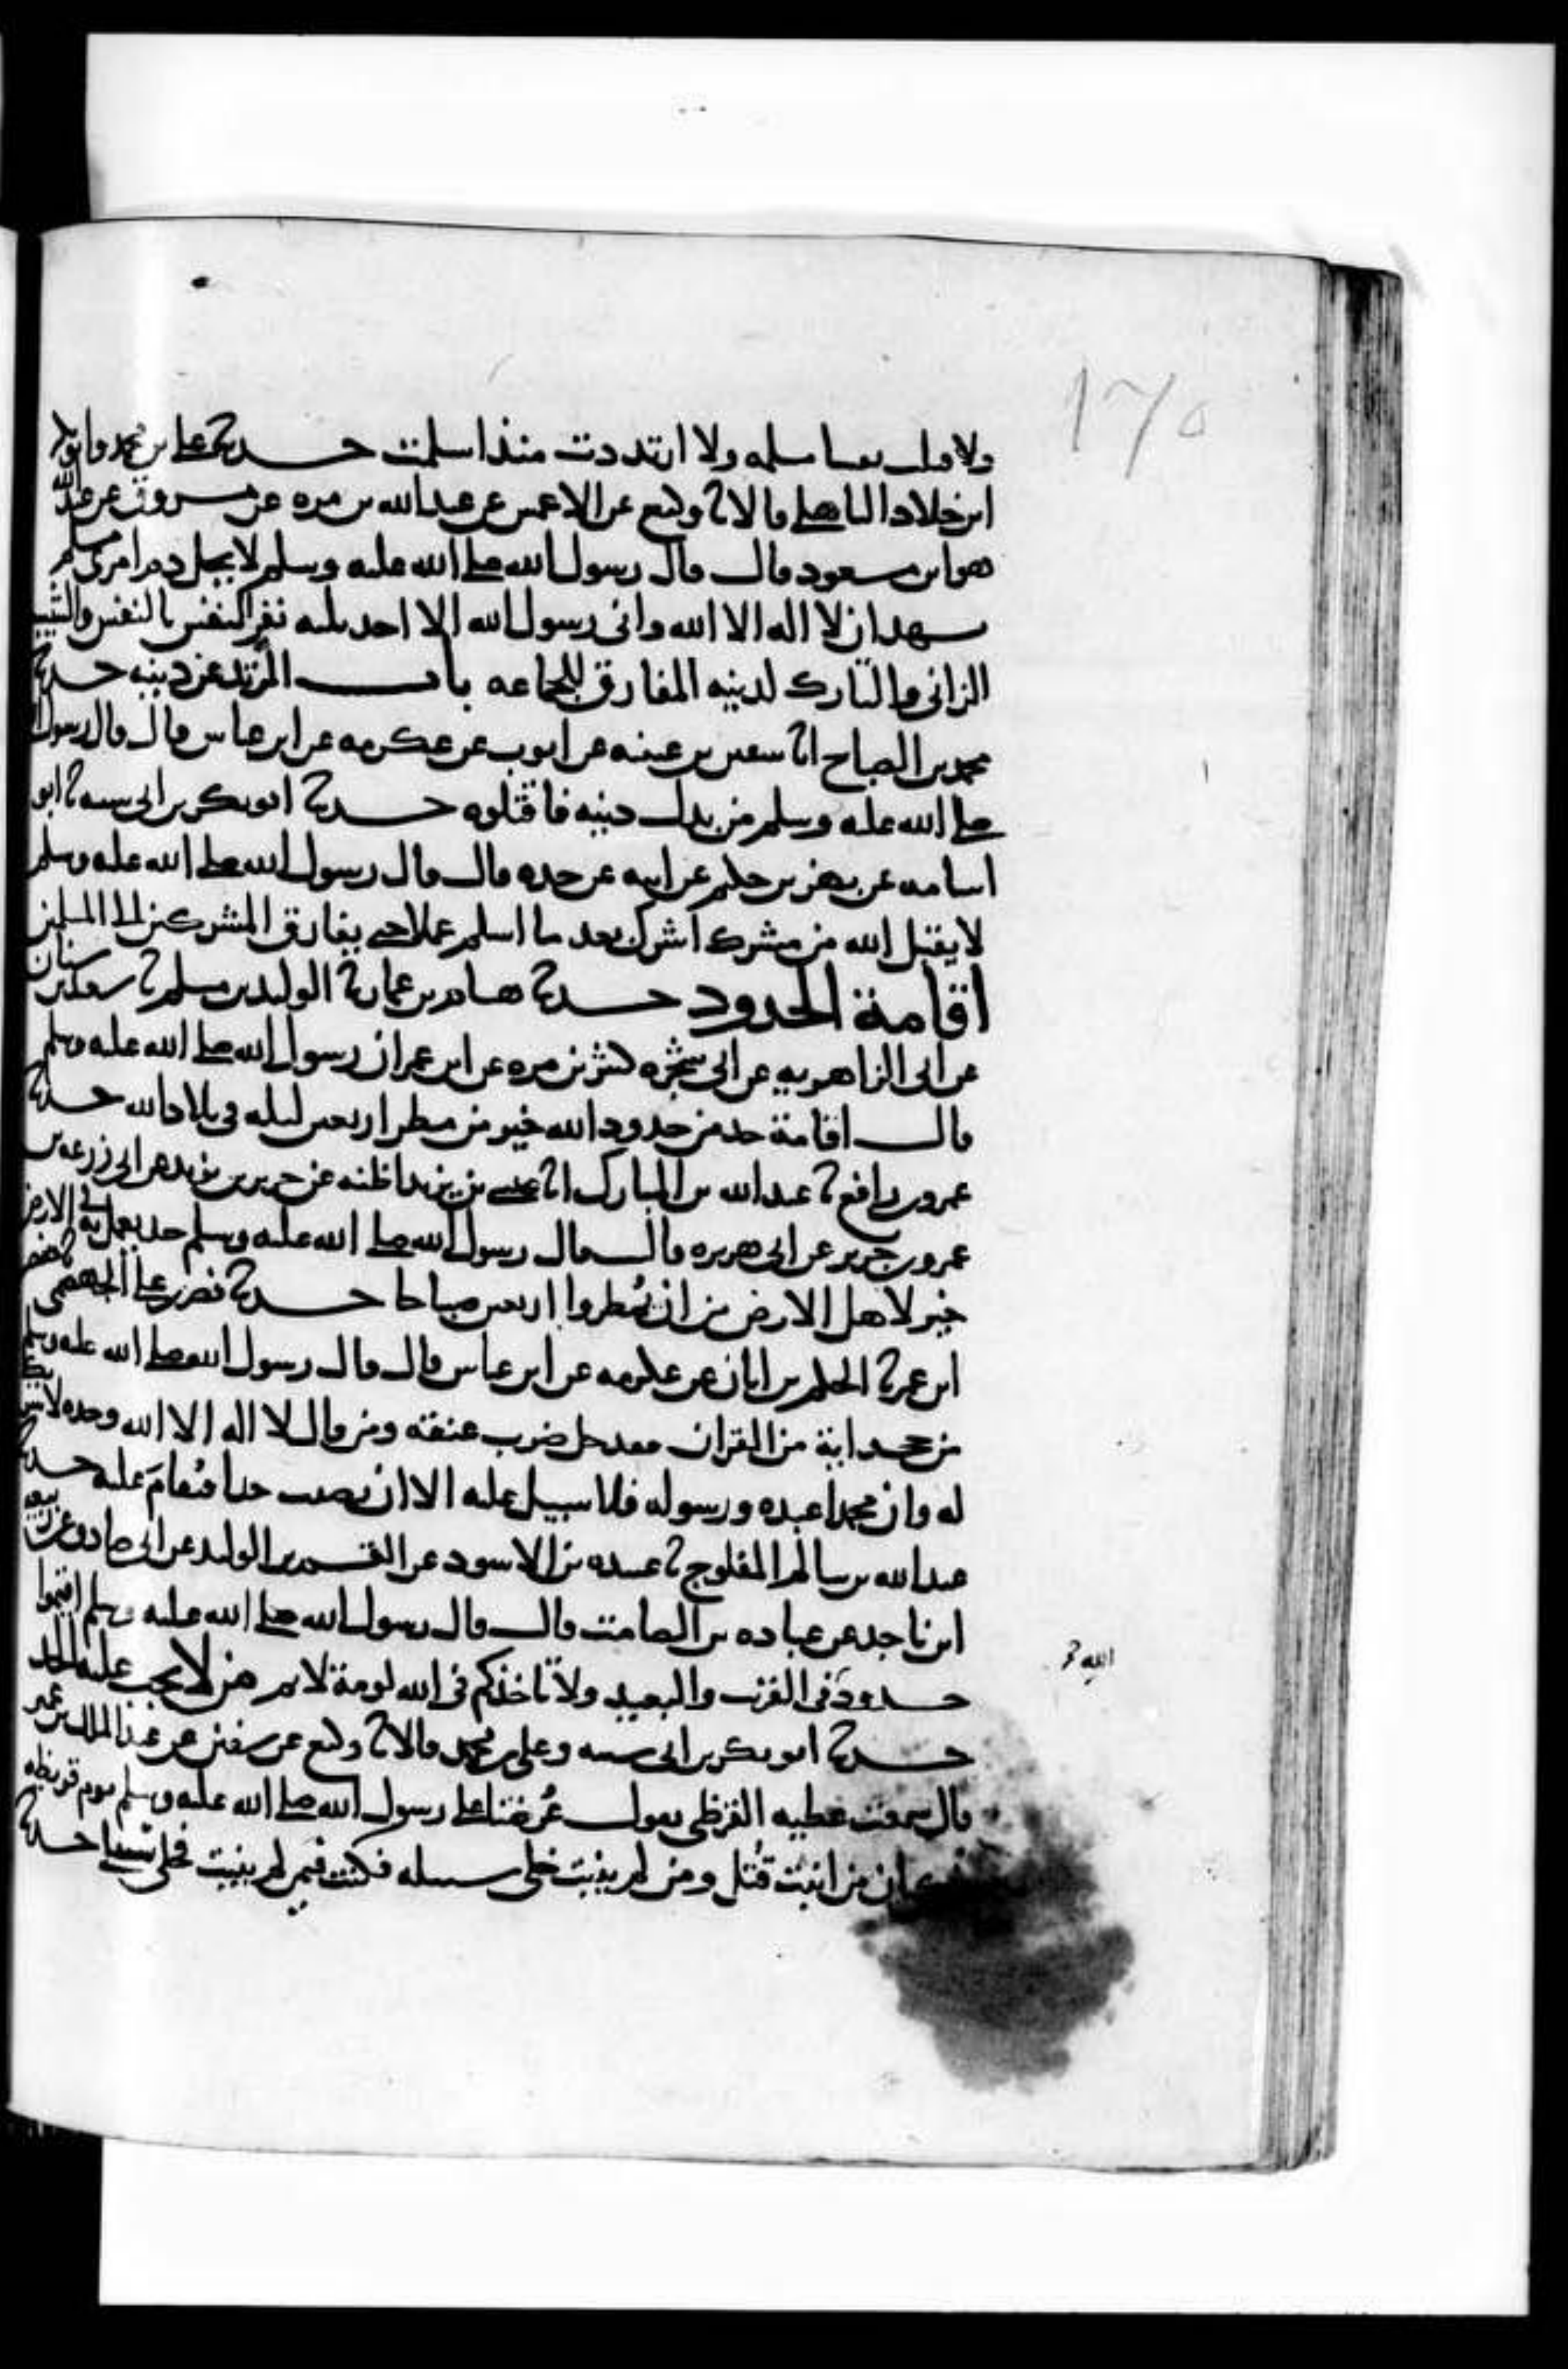 ١٧٥
ولا قتلت نفسا مسلمه ولا ارتددت منذ اسلمت حدثنا علي بن محمد وابو بكر
ابن خلاد الباهلي قالا ثنا وكيع عن الاعمش عن عبد الله بن مره عن مسروق عن عبد الله
هو ابن مسعود قال قال رسول الله صلى الله عليه وسلم لا يحل دم امرئ مسلم
يشهد ان لا اله الا الله واني رسول الله الا احد ثلثه نفر النفس بالنفس والثيب
الزاني والتارك لدينه المفارق للجماعه باب المرتد عن دينه حدثنا
محمد بن الصباح انا سفين بن عيينه عن ايوب عن عكرمه عن ابن عباس قال قال رسول الله
صلى الله عليه وسلم من بدل دينه فاقتلوه حدثنا ابو بكر بن ابي شيبه ثنا ابو
اسامه عن بهز بن حكيم عن ابيه عن جده قال قال رسول الله صلى الله عليه وسلم
لا يقبل الله من مشرك اشرك بعد ما اسلم عملا حتى يفارق المشركين الى المسلمين
اقامة الحدود حدثنا هشام بن عمار ثنا الوليد بن مسلم ثنا سعيد بن سنان
عن ابي الزاهريه عن ابي شجره كثير بن مره عن ابن عمر ان رسول الله صلى الله عليه وسلم
قال اقامة حد من حدود الله خير من مطر اربعين ليله في بلاد الله حدثنا
عمرو بن رافع ثنا عبد الله بن المبارك انا عيسى بن يزيد اظنه عن جرير بن يزيد عن ابي زرعه بن
عمرو بن جرير عن ابي هريره قال قال رسول الله صلى الله عليه وسلم حد يعمل به في الارض
خير لاهل الارض من ان يُمطروا اربعين صباحا حدثنا نصر بن علي الجهضمي ثنا حفص
ابن عمر ثنا الحكم بن ابان عن عكرمه عن ابن عباس قال قال رسول الله صلى الله عليه وسلم
من جحد اية من القران فقد حل ضرب عنقه ومن قال لا اله الا الله وحده لا شريك
له وان محمدا عبده ورسوله فلا سبيل عليه الا ان يصيب حدا فيُقامَ عليه حدثنا
عبد الله بن سالم المفلوج ثنا عبيده بن الاسود عن القسم بن الوليد عن ابي صادق عن ربيعه
ابن ناجد عن عباده بن الصامت قال قال رسول الله صلى الله عليه وسلم اقيموا
حدودَ في القريب والبعيد ولا تاخذكم في الله لومة لائم من لا يجب عليه الحد
الله
حدثنا ابو بكر بن ابي شيبه وعلي بن محمد قالا ثنا وكيع عن سفين عن عبد الملك بن عمير
قال سمعت عطيه القرظي يقول عُرضنا على رسول الله صلى الله عليه وسلم يوم قريظه
فكان من انبت قُتل ومن لم ينبت خلي سبيله فكنت فيمن لم ينبت فخلي سبيلي حدثنا